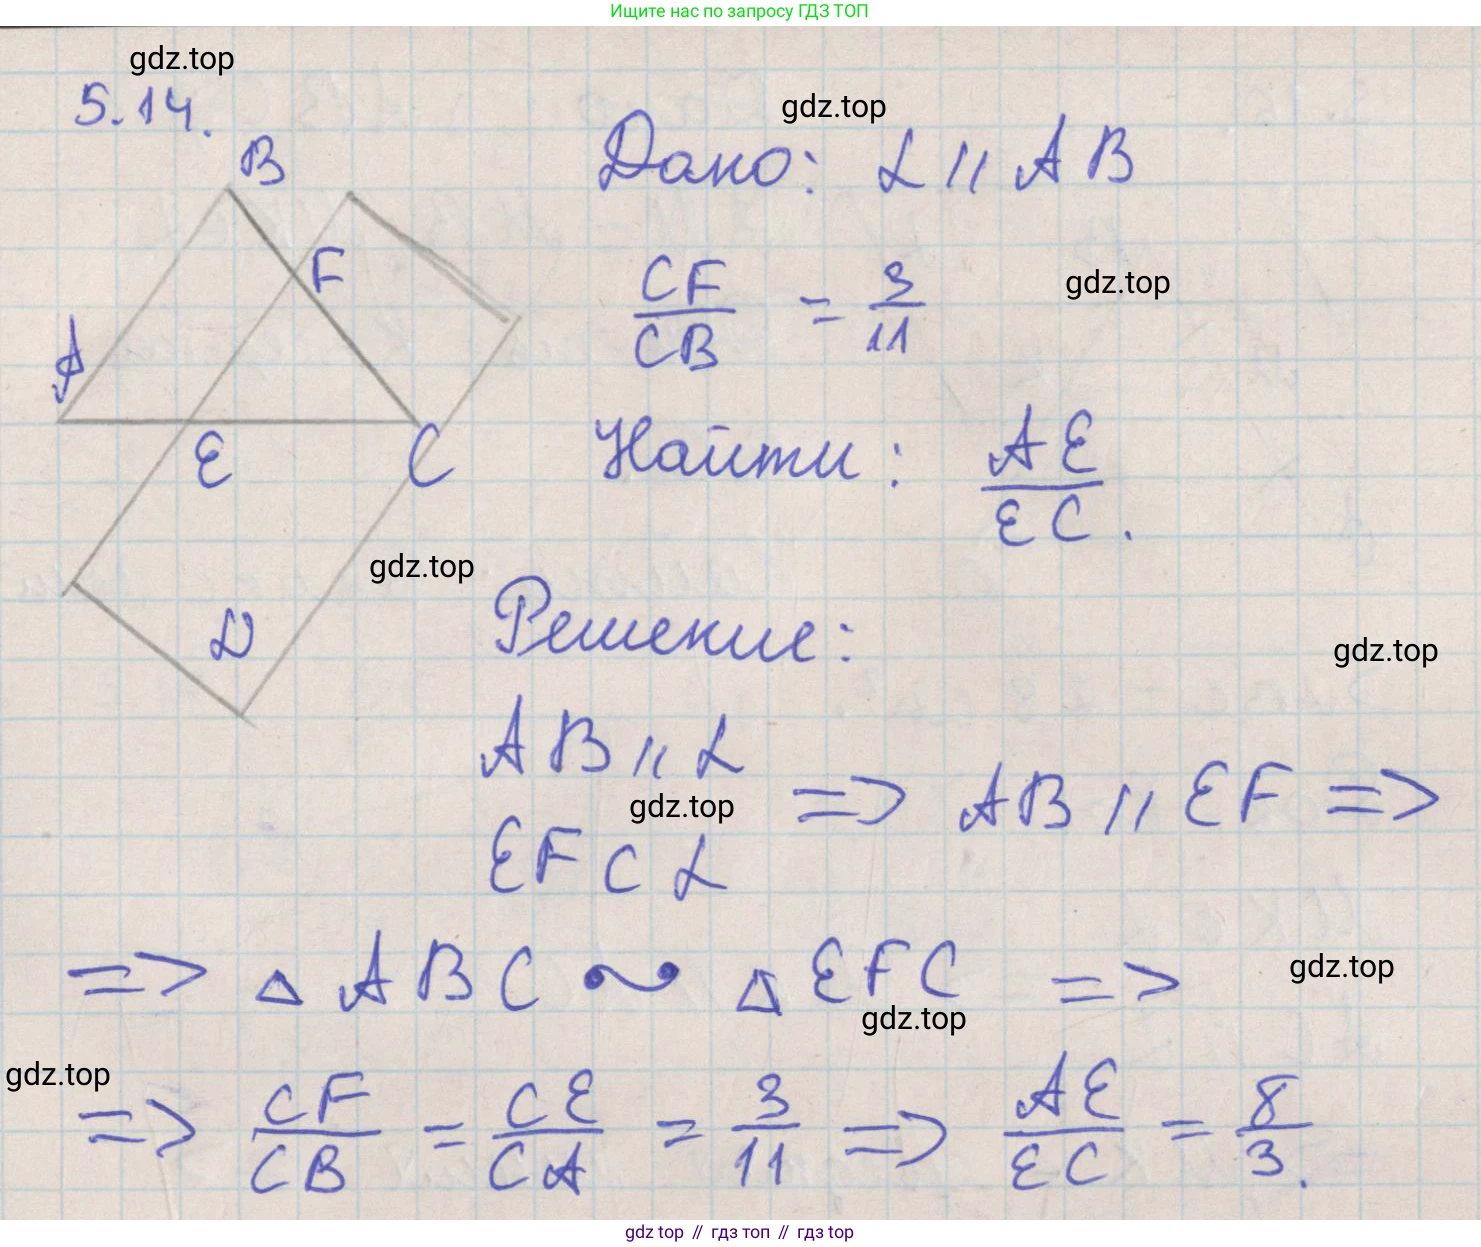 Ищите нас по запросу ГДЗ ТОП
gdz.top
5.14.
gdz.top
B
Дано: α || AB
F
CF/CB = 3/11
gdz.top
A
E
C
Найти: AE/EC.
gdz.top
α
Решение:
gdz.top
AB || α
gdz.top
EF ⊂ α
=> AB || EF =>
=> △ABC ~ △EFC =>
gdz.top
gdz.top
gdz.top
=> CF/CB = CE/CA = 3/11 => AE/EC = 8/3.
gdz top // гдз топ // гдз top